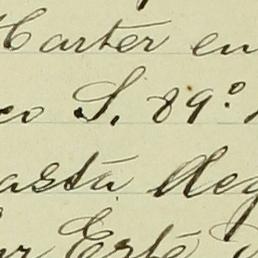 Harter en
co S. 89°
asta lleg
ur Este